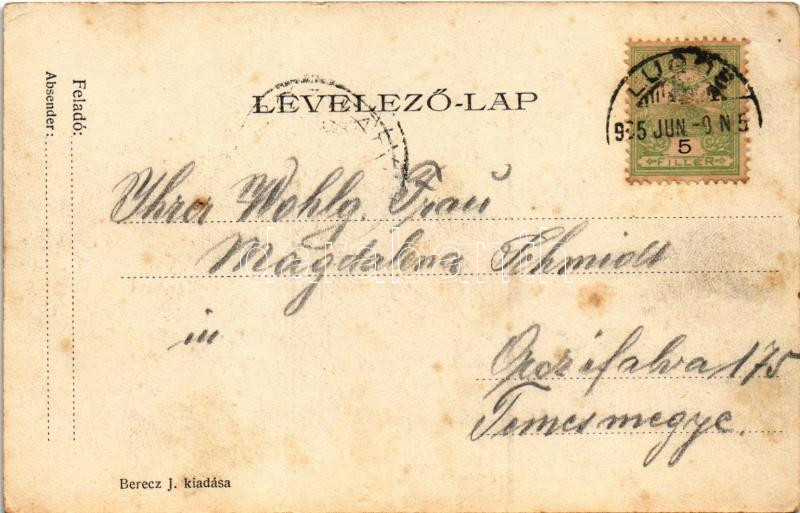 Feladó:
Absender:
LEVELEZŐ-LAP
LUGOS
5
FILLÉR
Ihrer Wohlg. Frau
Magdalena Schmidt
in
Orczifalva 175
Temesmegye.
Berecz J. kiadása
darabanth